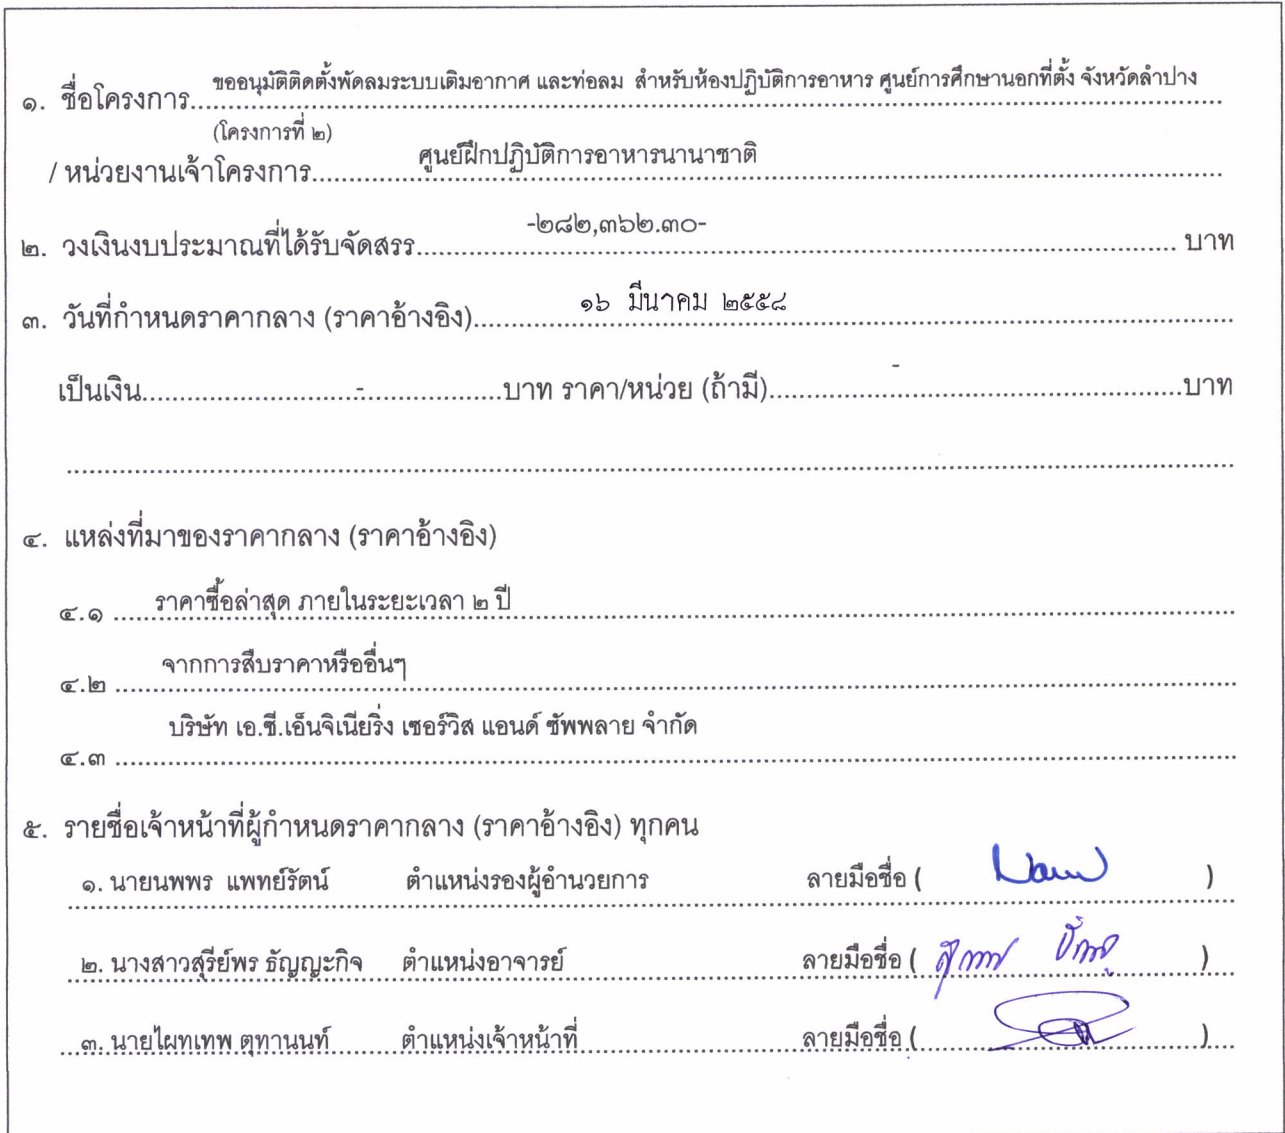 ๑. ชื่อโครงการ....ขออนุมัติติดตั้งพัดลมระบบเติมอากาศ และท่อลม สำหรับห้องปฏิบัติการอาหาร ศูนย์การศึกษานอกที่ตั้ง จังหวัดลำปาง
(โครงการที่ ๒)
/ หน่วยงานเจ้าโครงการ....ศูนย์ฝึกปฏิบัติการอาหารนานาชาติ
๒. วงเงินงบประมาณที่ได้รับจัดสรร....-๒๘๒,๓๖๒.๓๐-....บาท
๓. วันที่กำหนดราคากลาง (ราคาอ้างอิง)....๑๖ มีนาคม ๒๕๕๘
เป็นเงิน....-....บาท ราคา/หน่วย (ถ้ามี)....-....บาท
๔. แหล่งที่มาของราคากลาง (ราคาอ้างอิง)
๔.๑ ราคาซื้อล่าสุด ภายในระยะเวลา ๒ ปี
๔.๒ จากการสืบราคาหรืออื่นๆ
๔.๓ บริษัท เอ.ซี.เอ็นจิเนียริ่ง เซอร์วิส แอนด์ ซัพพลาย จำกัด
๕. รายชื่อเจ้าหน้าที่ผู้กำหนดราคากลาง (ราคาอ้างอิง) ทุกคน
๑. นายนพพร แพทย์รัตน์ ตำแหน่งรองผู้อำนวยการ ลายมือชื่อ ( )
๒. นางสาวสุรีย์พร ธัญญะกิจ ตำแหน่งอาจารย์ ลายมือชื่อ ( )
๓. นายไผทเทพ ตุทานนท์ ตำแหน่งเจ้าหน้าที่ ลายมือชื่อ ( )